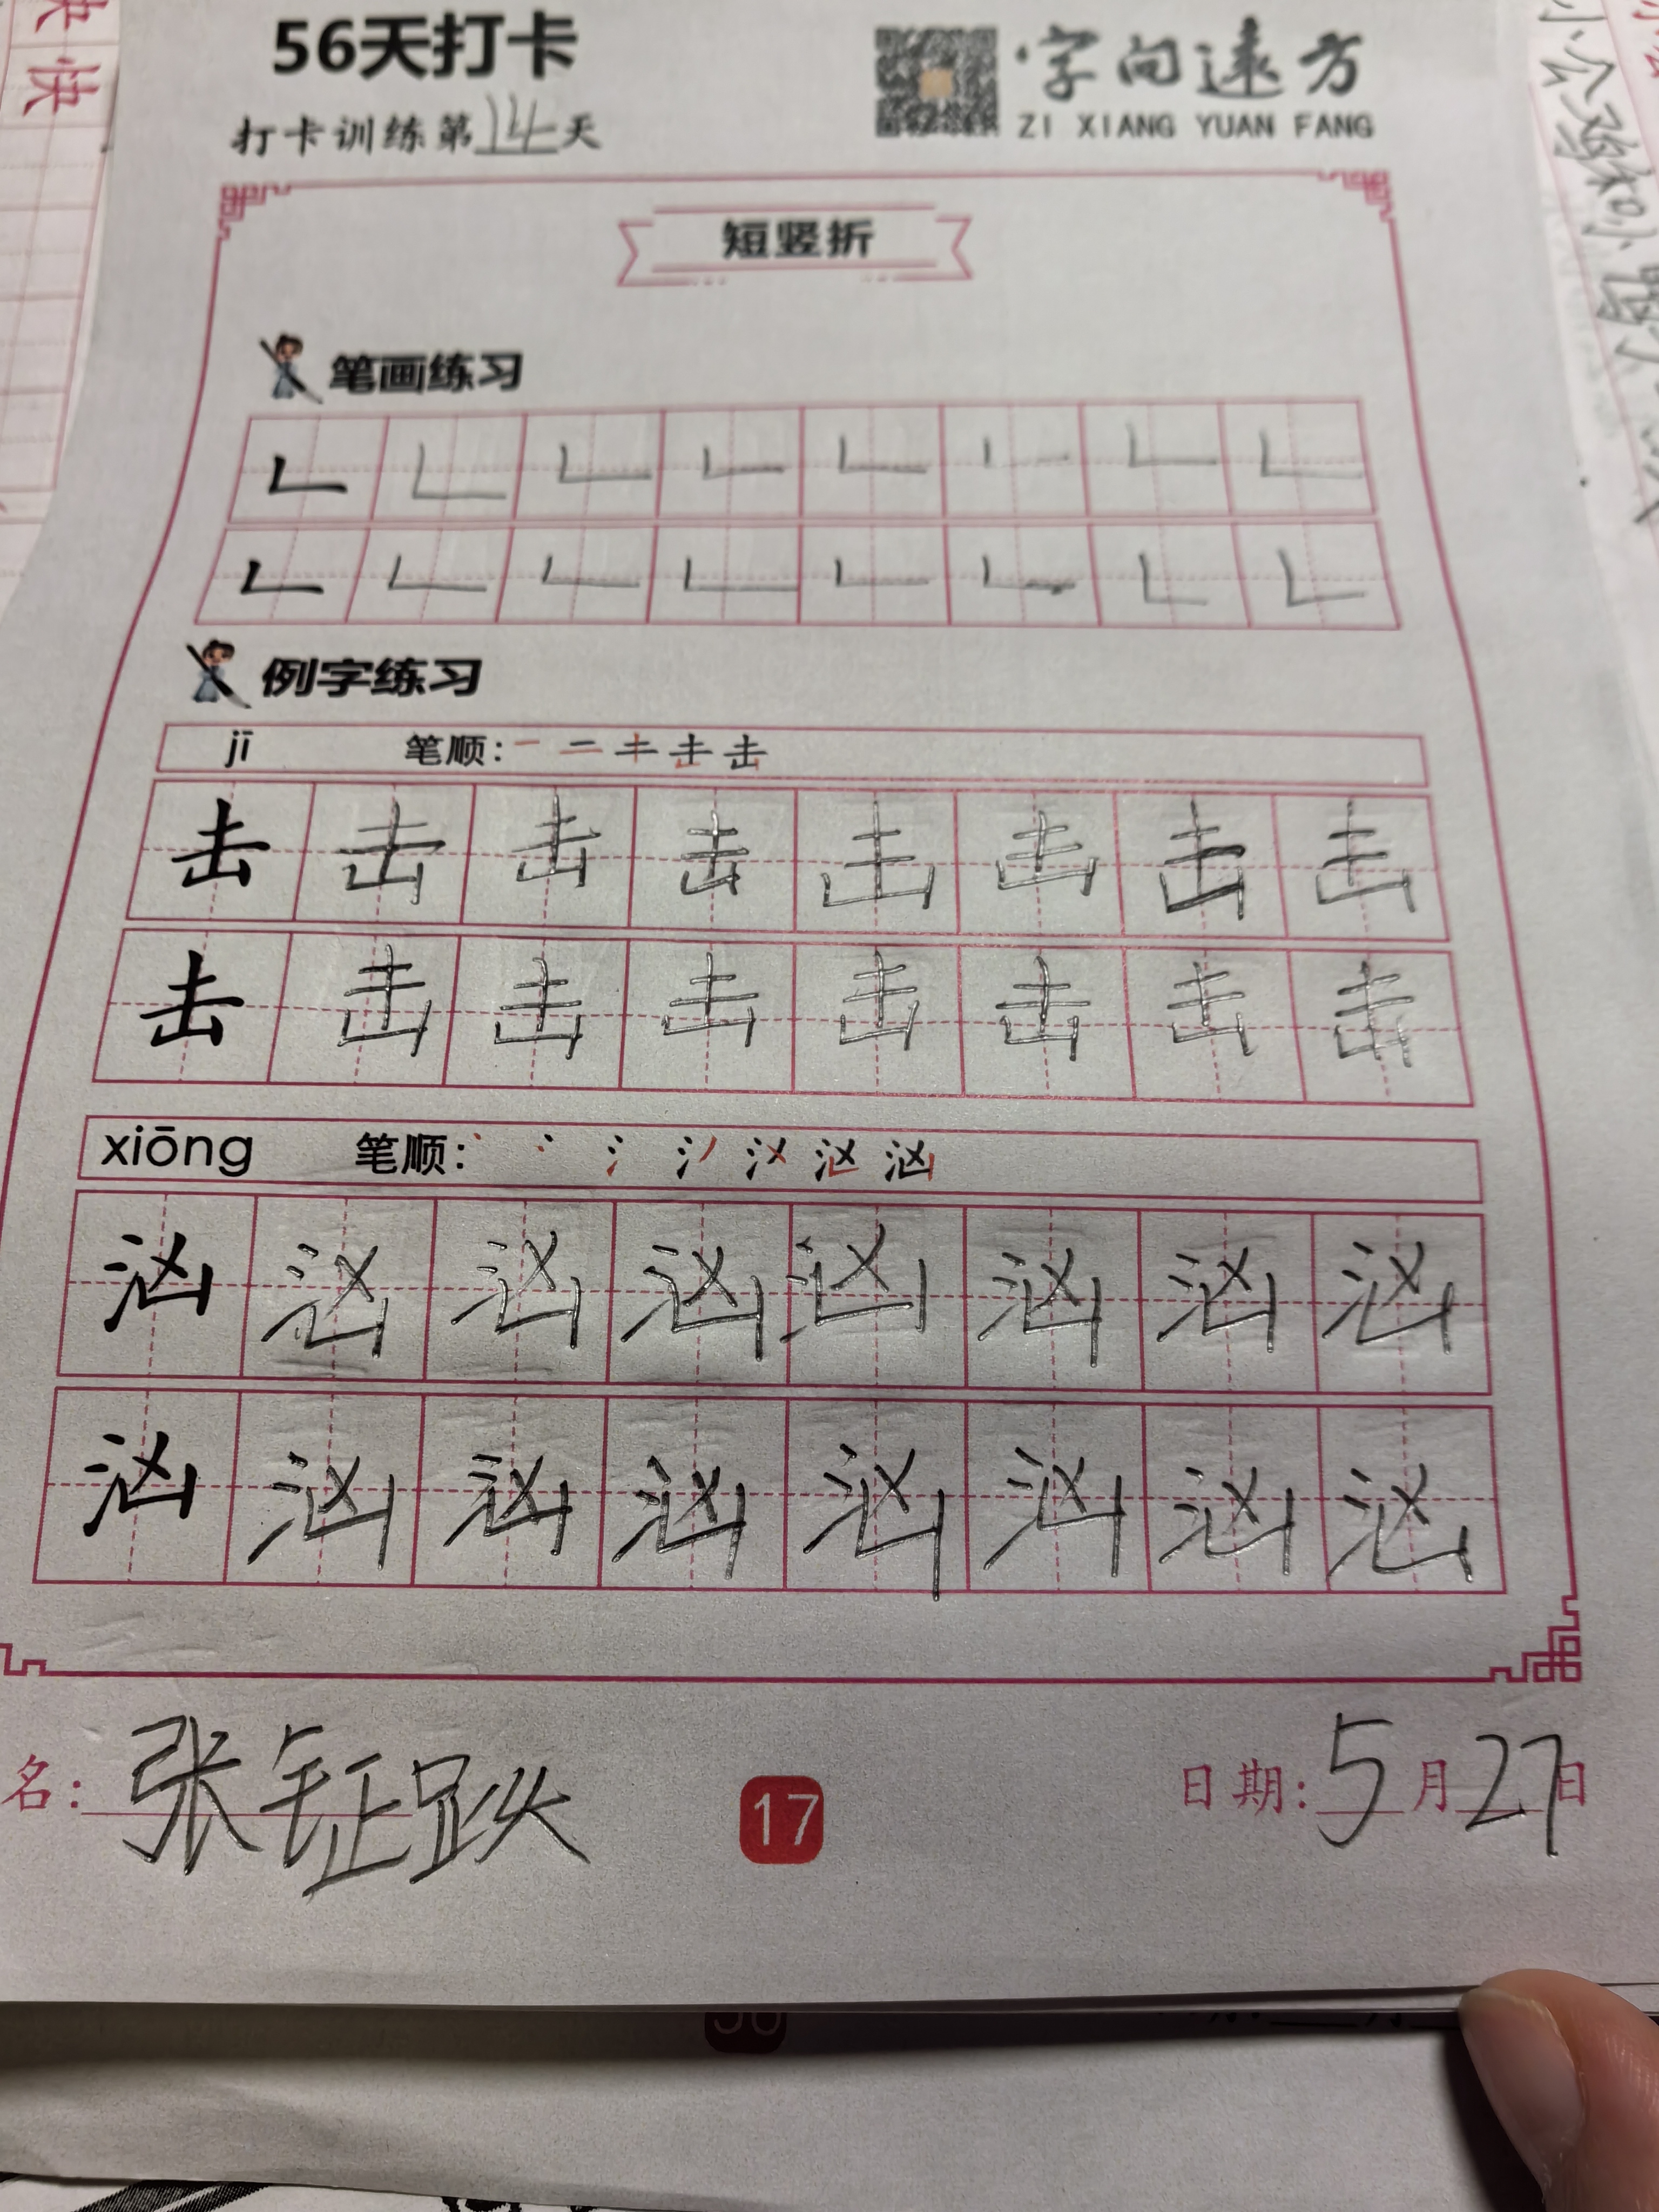 56天打卡
打卡训练第14天
字向远方
ZI XIANG YUAN FANG
短竖折
笔画练习
例字练习
jī 笔顺:
击 击 击 击 击 击 击 击
击 击 击 击 击 击 击 击
xiōng 笔顺:
汹 汹 汹 汹 汹 汹 汹 汹
汹 汹 汹 汹 汹 汹 汹 汹
名: 张钲跃
17
日期: 5月27日
快